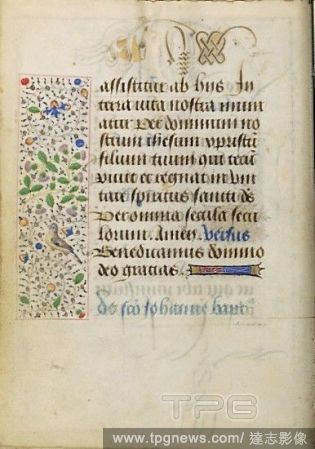 assistitur ab hijs In
terra uita nostra muni
atur Per dominum no
strum ihesum xpristum
filium tuum qui tecum
viuit et regnat in vni
tate spiritus sancti ds
Per omnia secula secu
lorum. Amen. Versus
Benedicamus domino
deo gracias.
De sco Iohanne bapt
TPG
www.tpgnews.com/ 達志影像